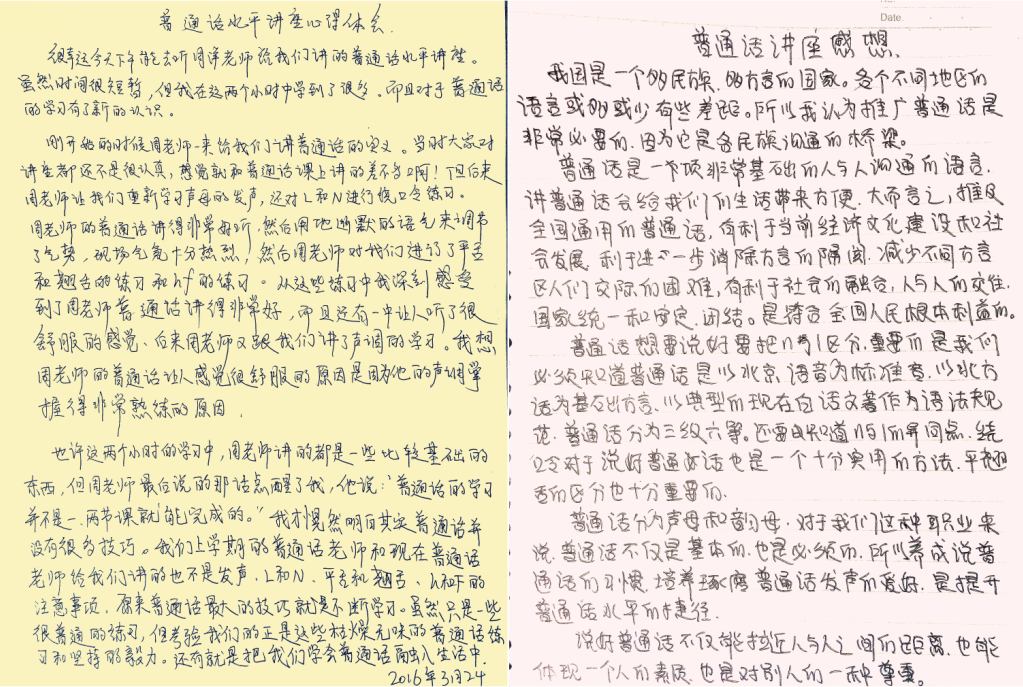 普通话水平讲座心得体会.
很幸运今天下午能去听周洋老师给我们讲的普通话水平讲座。
虽然时间很短暂，但我在这两个小时中学到了很多。而且对于普通话
的学习有了新的认识。
刚开始的时候周老师一来给我们讲普通话的定义。当时大家对
讲座都还不是很认真，感觉就和普通话课上讲的差不多啊！但后来
周老师让我们重新学习声母的发声，还对L和N进行绕口令练习。
周老师的普通话讲得非常好听，然后用他幽默的语气来调节
了气势，现场气氛十分热烈，然后周老师对我们进行了平舌
和翘舌的练习和hf的练习。从这些练习中我深刻感受
到了周老师普通话讲得非常好，而且还有一中让人听了很
舒服的感觉、后来周老师又跟我们讲了声调的学习。我想
周老师的普通话让人感觉很舒服的原因是因为他的声调掌
握得非常熟练的原因.
也许这两个小时的学习中，周老师讲的都是一些比较基础的
东西，但周老师最后说的那话点醒了我，他说：“普通话的学习
并不是一、两节课就能完成的。”我才恍然明白其实普通话并
没有很多技巧。我们上学期的普通话老师和现在普通话
老师给我们讲的也不是发声、L和N、平舌和翘舌、h和F的
注意事项，原来普通话最大的技巧就是不断学习。虽然只是一些
很普通的练习，但考验我们的正是这些枯燥无味的普通话练
习和坚持的毅力。还有就是把我们学会普通话融入生活中.
2016年3月24
Date.
普通话讲座感想.
我国是一个多民族、多方言的国家。各个不同地区的
语言或多或少有些差距。所以我认为推广普通话是
非常必要的，因为它是各民族沟通的桥梁。
普通话是一下项非常基础的人与人沟通的语言，
讲普通话会给我们的生活带来方便，大而言之，推及
全国通用的普通话，有利于当前经济文化建设和社
会发展，利于进一步消除方言的隔阂，减少不同方言
区人们交际的困难，有利于社会的融合，人与人的交往，
国家统一和安定、团结。是符合全国人民根本利益的。
普通话想要说好要把n与l区分，重要的是我们
必须知道普通话是以北京语音为标准音，以北方
话为基础方言、以典型的现在白话文著作为语法规
范，普通话分为三级六等。还要知道n与l的异同点，绕
口令对于说好普通话也是一个十分实用的方法，平翘
舌的区分也十分重要的.
普通话分为声母和韵母，对于我们这种职业来
说，普通话不仅是基本的，也是必须的，所以养成说普
通话的习惯，培养琢磨普通话发声的爱好，是提升
普通话水平的捷径.
说好普通话不仅能拉近人与人之间的距离，也能
体现一个人的素质，也是对别人的一种尊重。